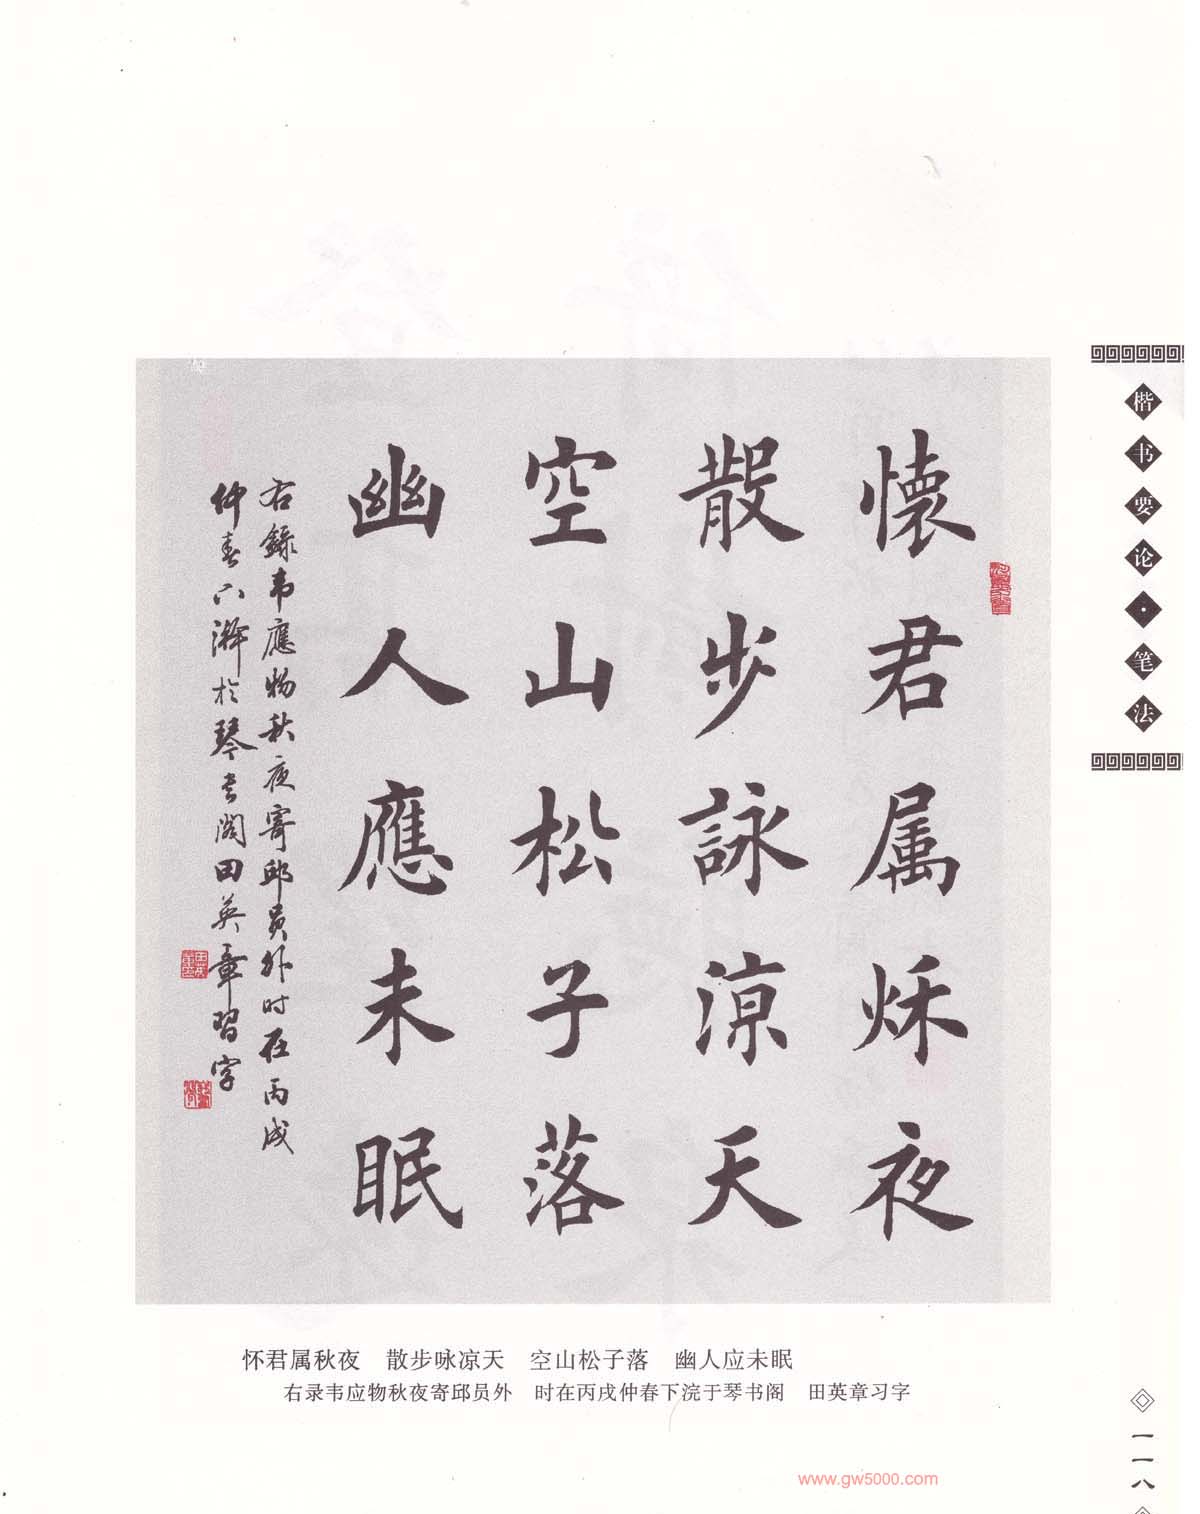 懷君属秌夜
散步詠涼天
空山松子落
幽人應未眠
右録韦應物秋夜寄邱員外时在丙戌
仲春下澣於琴书阁田英章習字
怀君属秋夜 散步咏凉天 空山松子落 幽人应未眠
右录韦应物秋夜寄邱员外 时在丙戌仲春下浣于琴书阁 田英章习字
楷书要论·笔法
一一八
www.gw5000.com